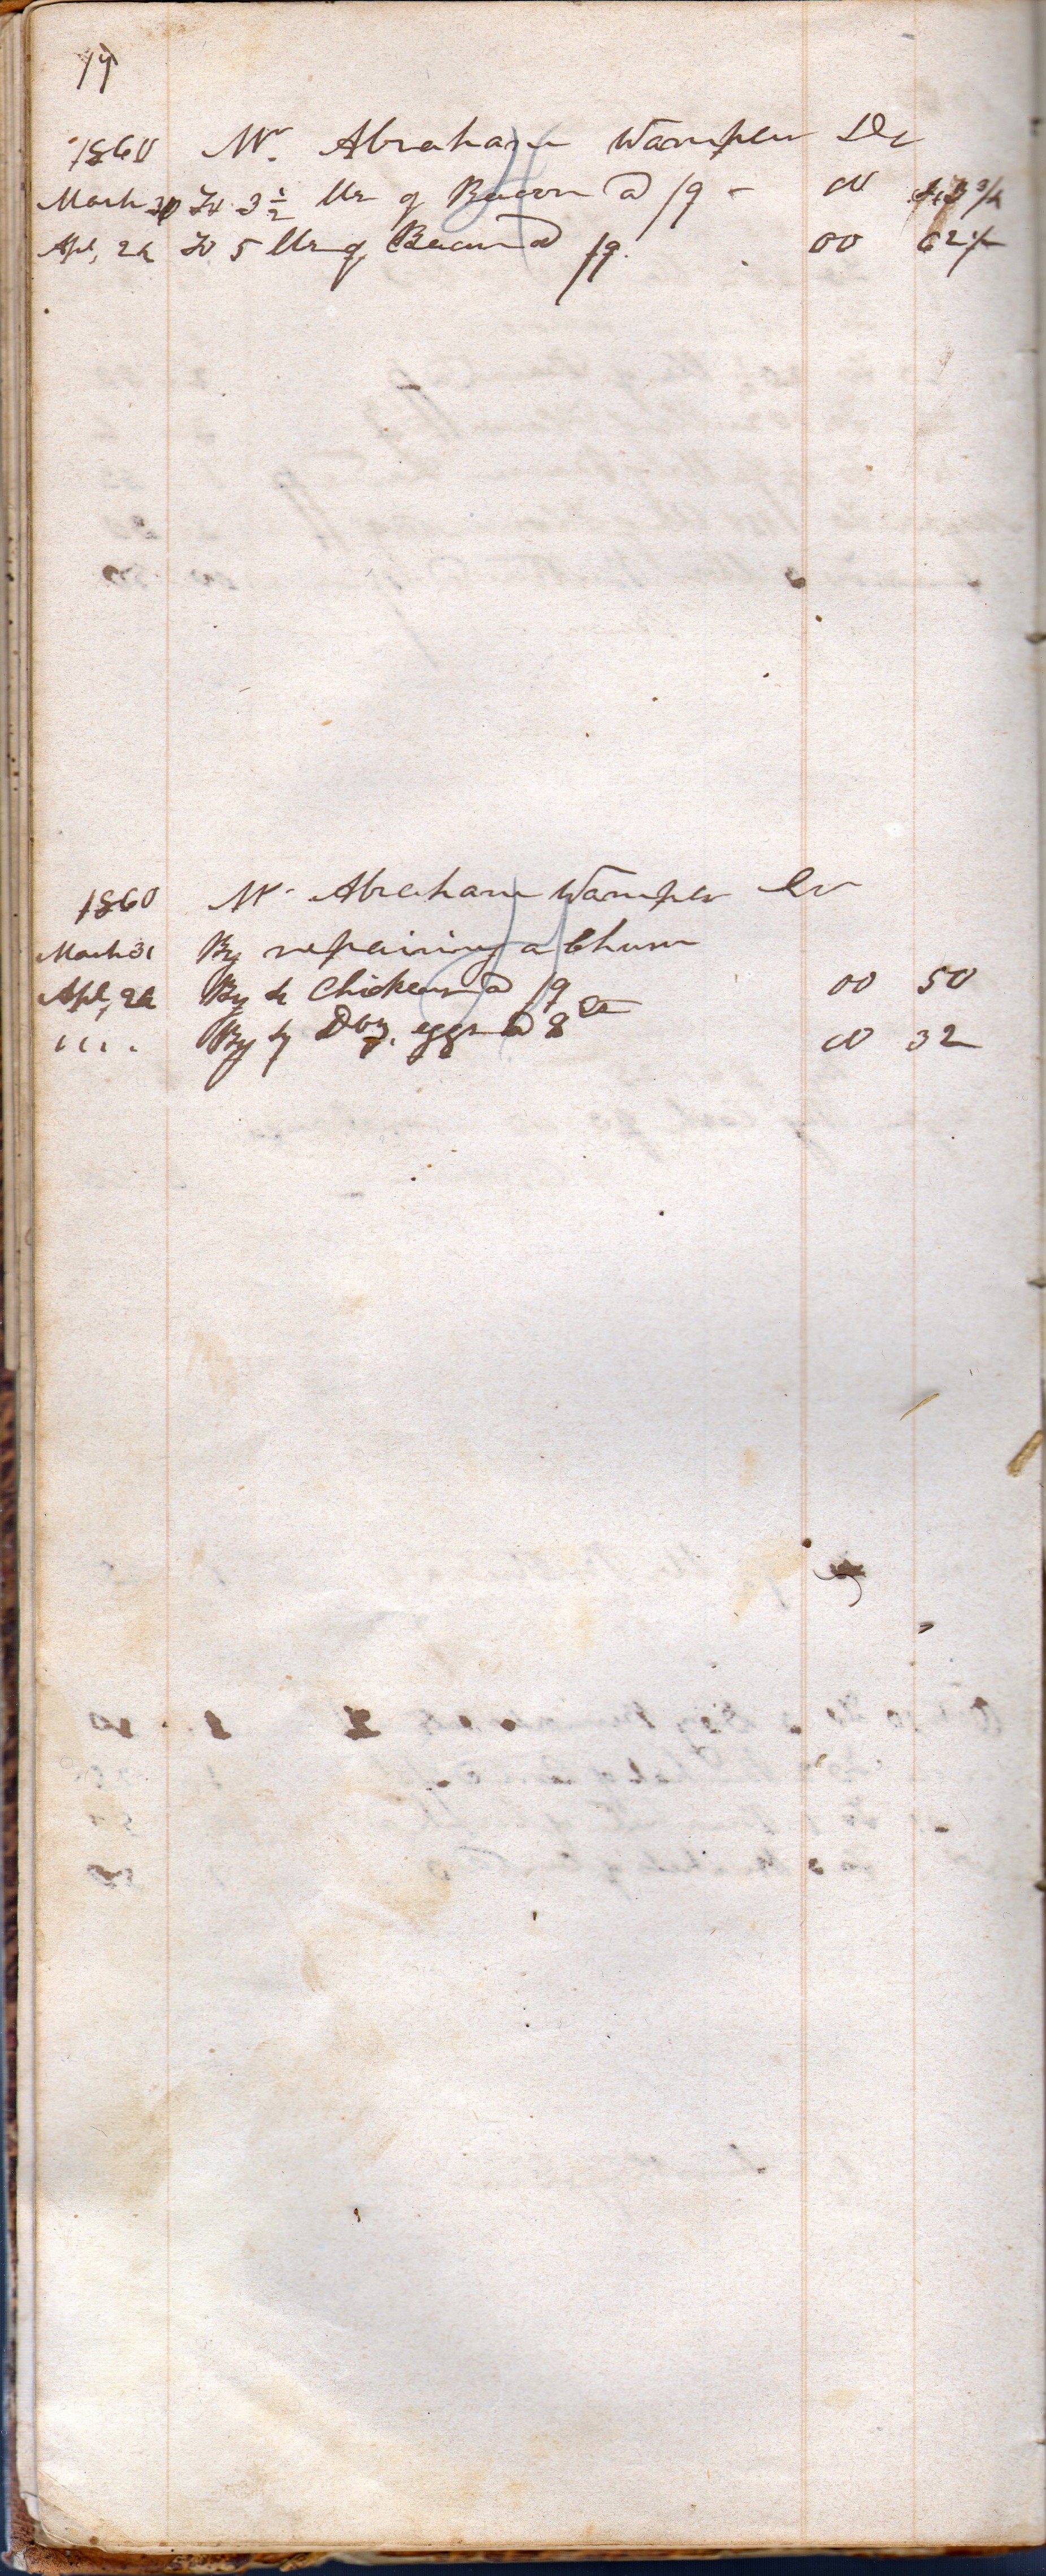 1860 Mr. Abraham Wampler Dr
March 31 To 3 1/2 lbs of Bacon @ /9 - 00 43 3/4
Apl, 24 To 5 lbs of Bacon @ /9. 00 62 1/2
1860 Mr Abraham Wampler Cr
March 31 By repairing a Churn
Apl, 24 By 4 Chickens @ /9 00 50
" " By 4 Doz. eggs @ 8 cts 00 32